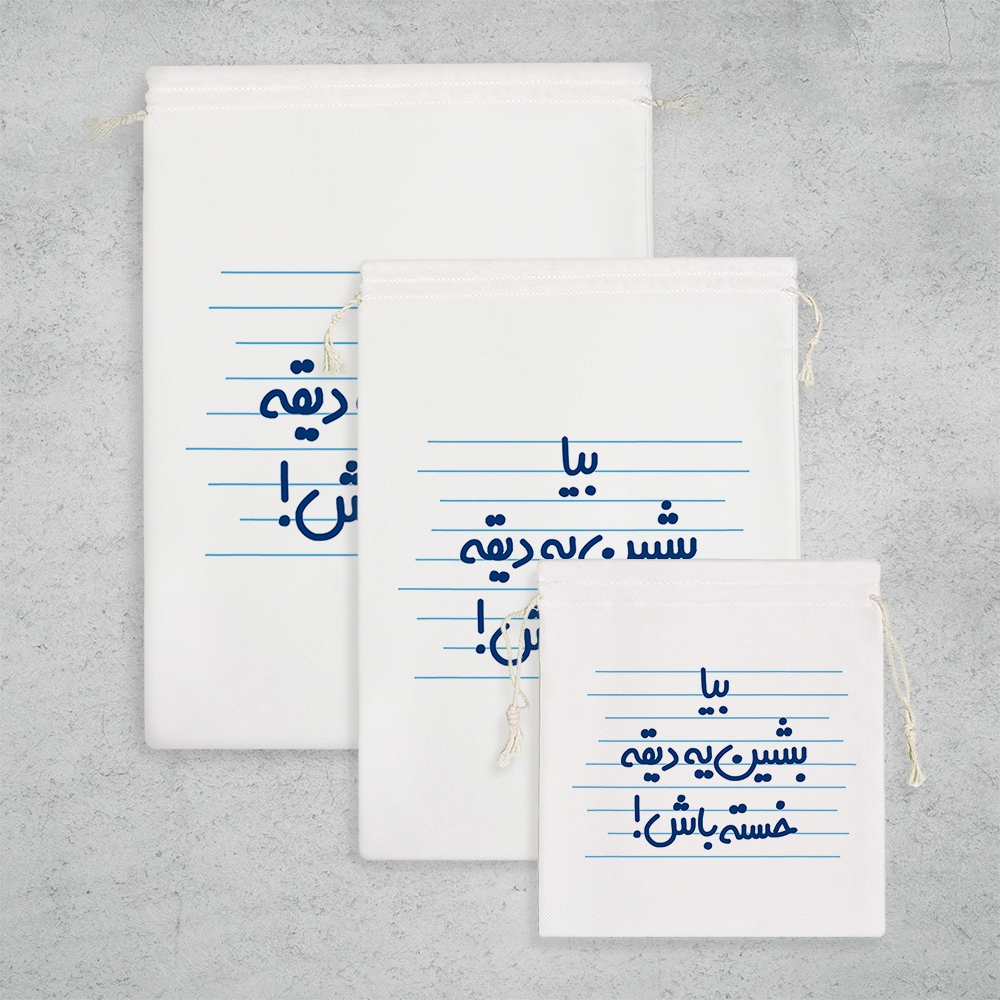 دیقه
ش!
بیا
بشین یه دیقه
ش!
بیا
بشین یه دیقه
خسته باش!